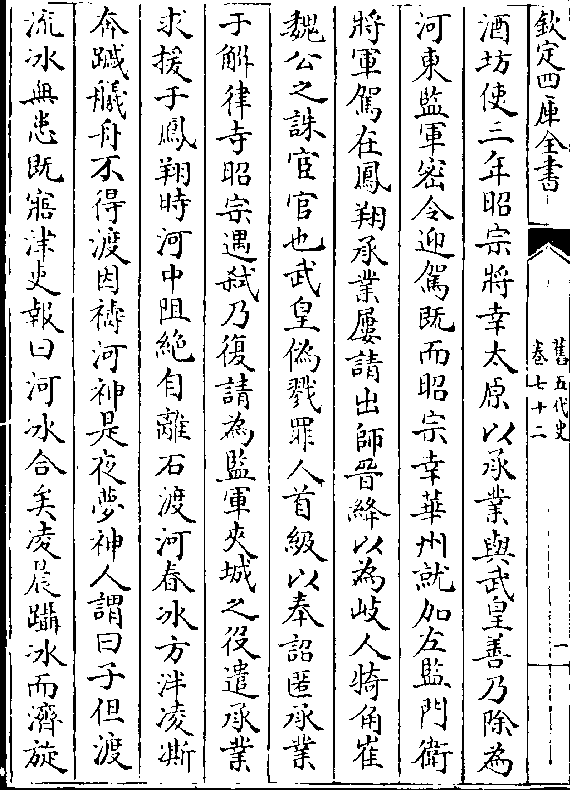 欽定四庫全書
舊五代史
卷七十二
一
酒坊使三年昭宗將幸太原以承業與武皇善乃除為
河東監軍密令迎駕既而昭宗幸華州就加左監門衛
將軍駕在鳳翔承業屢請出師晉絳以為岐人犄角崔
魏公之誅宦官也武皇偽戮罪人首級以奉詔匿承業
于斛律寺昭宗遇弒乃復請為監軍夾城之役遣承業
求援于鳳翔時河中阻絶自離石渡河春冰方泮凌澌
奔蹙艤舟不得渡因禱河神是夜夢神人謂曰子但渡
流冰無患既寤津吏報曰河冰合矣凌晨躡冰而濟旋